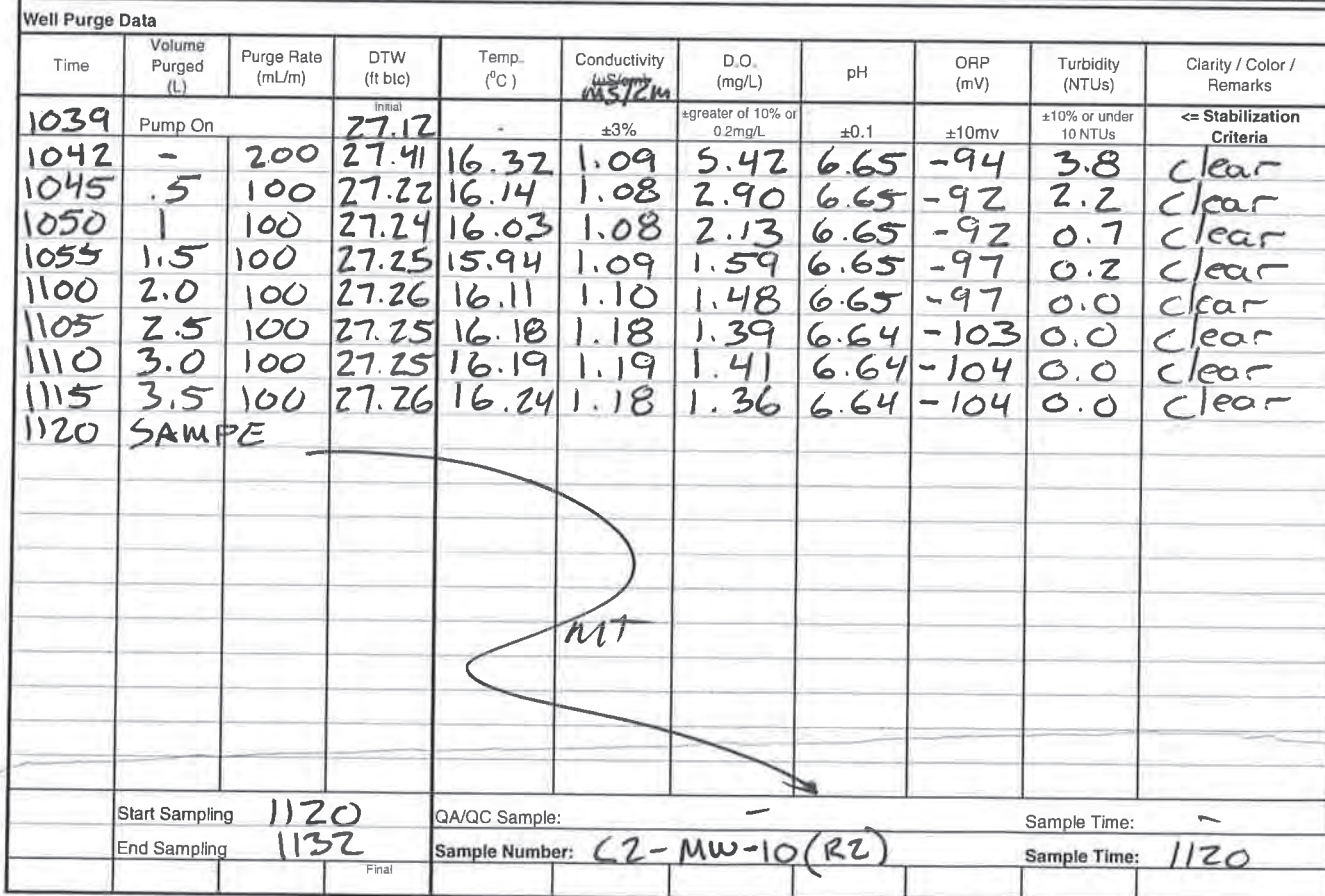 Well Purge Data
Time Volume Purged (L) Purge Rate (mL/m) DTW (ft btc) Temp. (⁰C) Conductivity mS/cm D.O. (mg/L) pH ORP (mV) Turbidity (NTUs) Clarity / Color / Remarks
1039 Pump On Initial 27.12 - ±3% ±greater of 10% or 0.2mg/L ±0.1 ±10mv ±10% or under 10 NTUs <= Stabilization Criteria
1042 - 200 27.41 16.32 1.09 5.42 6.65 -94 3.8 clear
1045 .5 100 27.22 16.14 1.08 2.90 6.65 -92 2.2 clear
1050 1 100 27.24 16.03 1.08 2.13 6.65 -92 0.7 clear
1055 1.5 100 27.25 15.94 1.09 1.59 6.65 -97 0.2 clear
1100 2.0 100 27.26 16.11 1.10 1.48 6.65 -97 0.0 clear
1105 2.5 100 27.25 16.18 1.18 1.39 6.64 -103 0.0 clear
1110 3.0 100 27.25 16.19 1.19 1.41 6.64 -104 0.0 clear
1115 3.5 100 27.26 16.24 1.18 1.36 6.64 -104 0.0 clear
1120 SAMPE
MT
Start Sampling 1120 QA/QC Sample: - Sample Time: -
End Sampling 1132 Sample Number: C2-MW-10(R2) Sample Time: 1120
Final